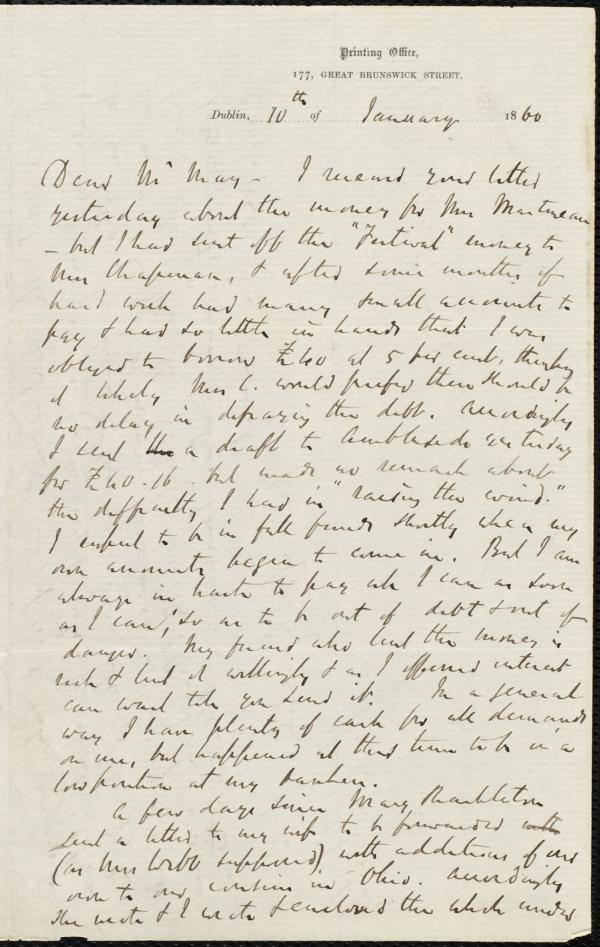 Printing Office,
177, GREAT BRUNSWICK STREET,
Dublin, 10th of January 1860
Dear Mr May - I received your letter
yesterday about the money for Mrs Martineau
- but I had sent off the "Festival" money to
Mrs Chapman, & after some months of
hard work had many small accounts to
pay & had so little in hands that I was
obliged to borrow £40 at 5 per cent, thinking
it likely Mrs C. would prefer there should be
no delay in defraying the debt. Accordingly
I sent the a draft to Ambleside yesterday
for £40.16. but made no remark about
the difficulty I had in "raising the wind."
I expect to be in full funds shortly when my
own accounts begin to come in. But I am
always in haste to pay all I can as soon
as I can, so as to be out of debt & out of
danger. My friend who lent the money is
rich & lent it willingly & as I offered interest
can wait till you send it. In a general
way I have plenty of cash for all demands
on me, but happened at this time to be in a
low position at my bankers.
A few days since Mary
sent a letter to my wife to be forwarded with
(as Mrs Webb supposed) with additions of our
own to our cousins in Ohio. Accordingly
she wrote & I wrote & enclosed the whole under